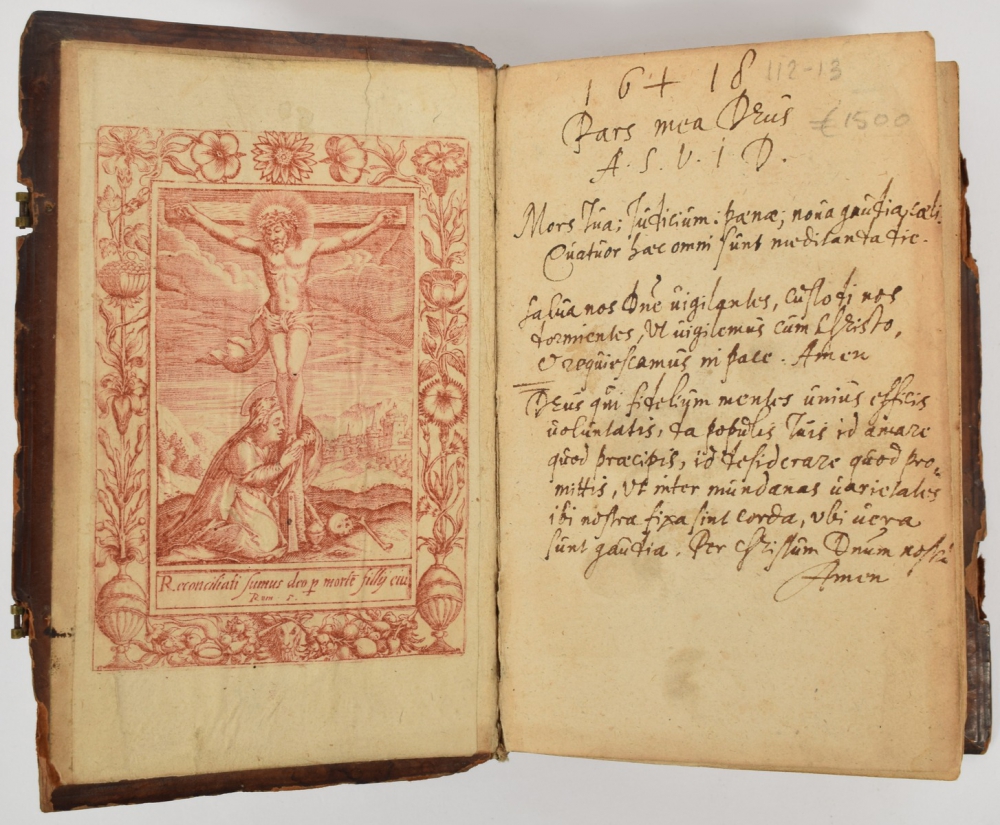 Reconciliati sumus deo p morte filly eiu
Rom 5.
16 + 18 112-13
Pars mea Deus £1500
A. S. V. I D.
Mors Tua; Judicium: pænæ; noua gaudia cæli,
Cuatuor hæc omni sunt meditanda die.
Salua nos Dne uigilantes, custodi nos
dormientes, Ut uigilemus cum Christo,
& requiescamus in pace. Amen
Deus qui fidelium mentes unius efficis
uoluntatis, da populis Tuis id amare
quod præcipis, id desiderare quod pro-
mittis, Ut inter mundanas uarietates
ibi nostra fixa sint corda, Ubi uera
sunt gaudia. Per Christum Dnum nostr
Amen